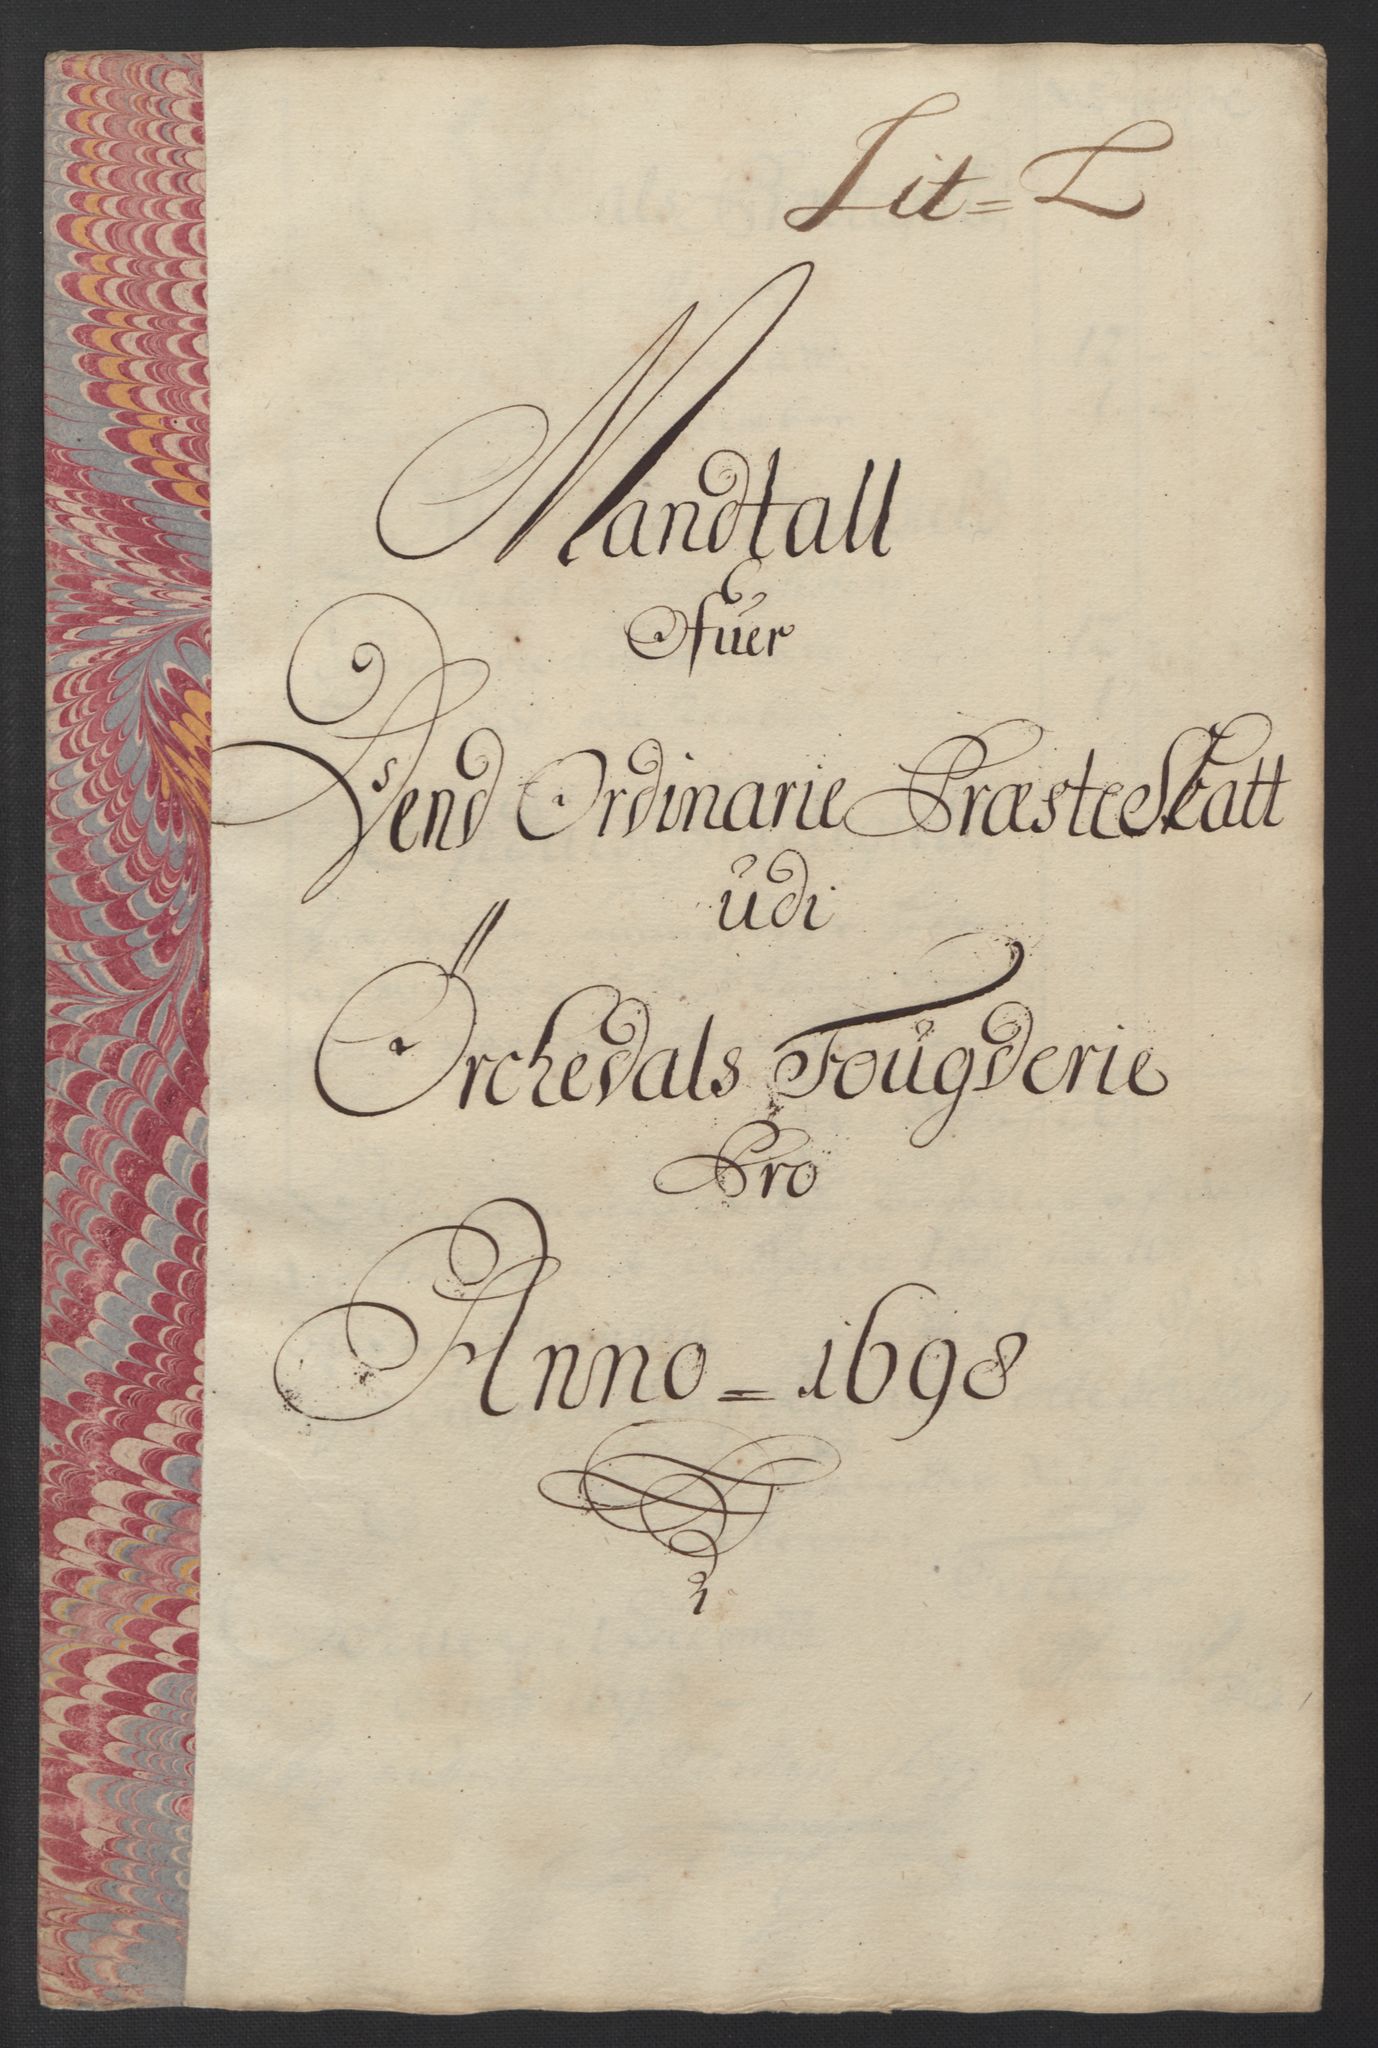 Lit = L
Mandtall
Ofuer
Dend Ordinarie Præste Skatt
udi
Orchedals Fougderie
Pro
Anno = 1698